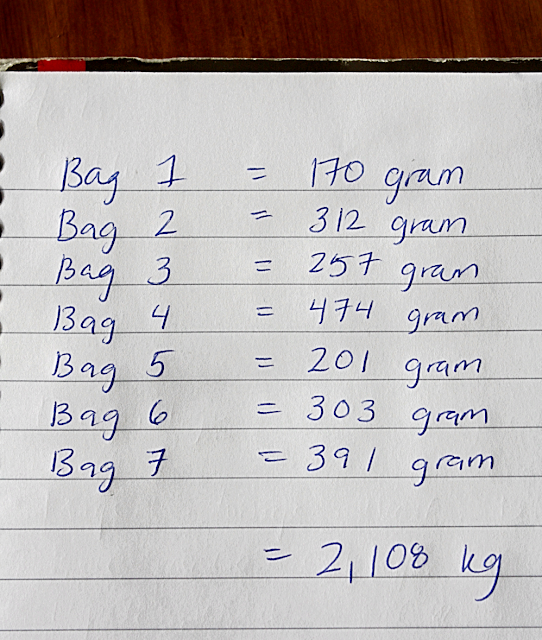 Bag 1 = 170 gram
Bag 2 = 312 gram
Bag 3 = 257 gram
Bag 4 = 474 gram
Bag 5 = 201 gram
Bag 6 = 303 gram
Bag 7 = 391 gram
= 2,108 kg